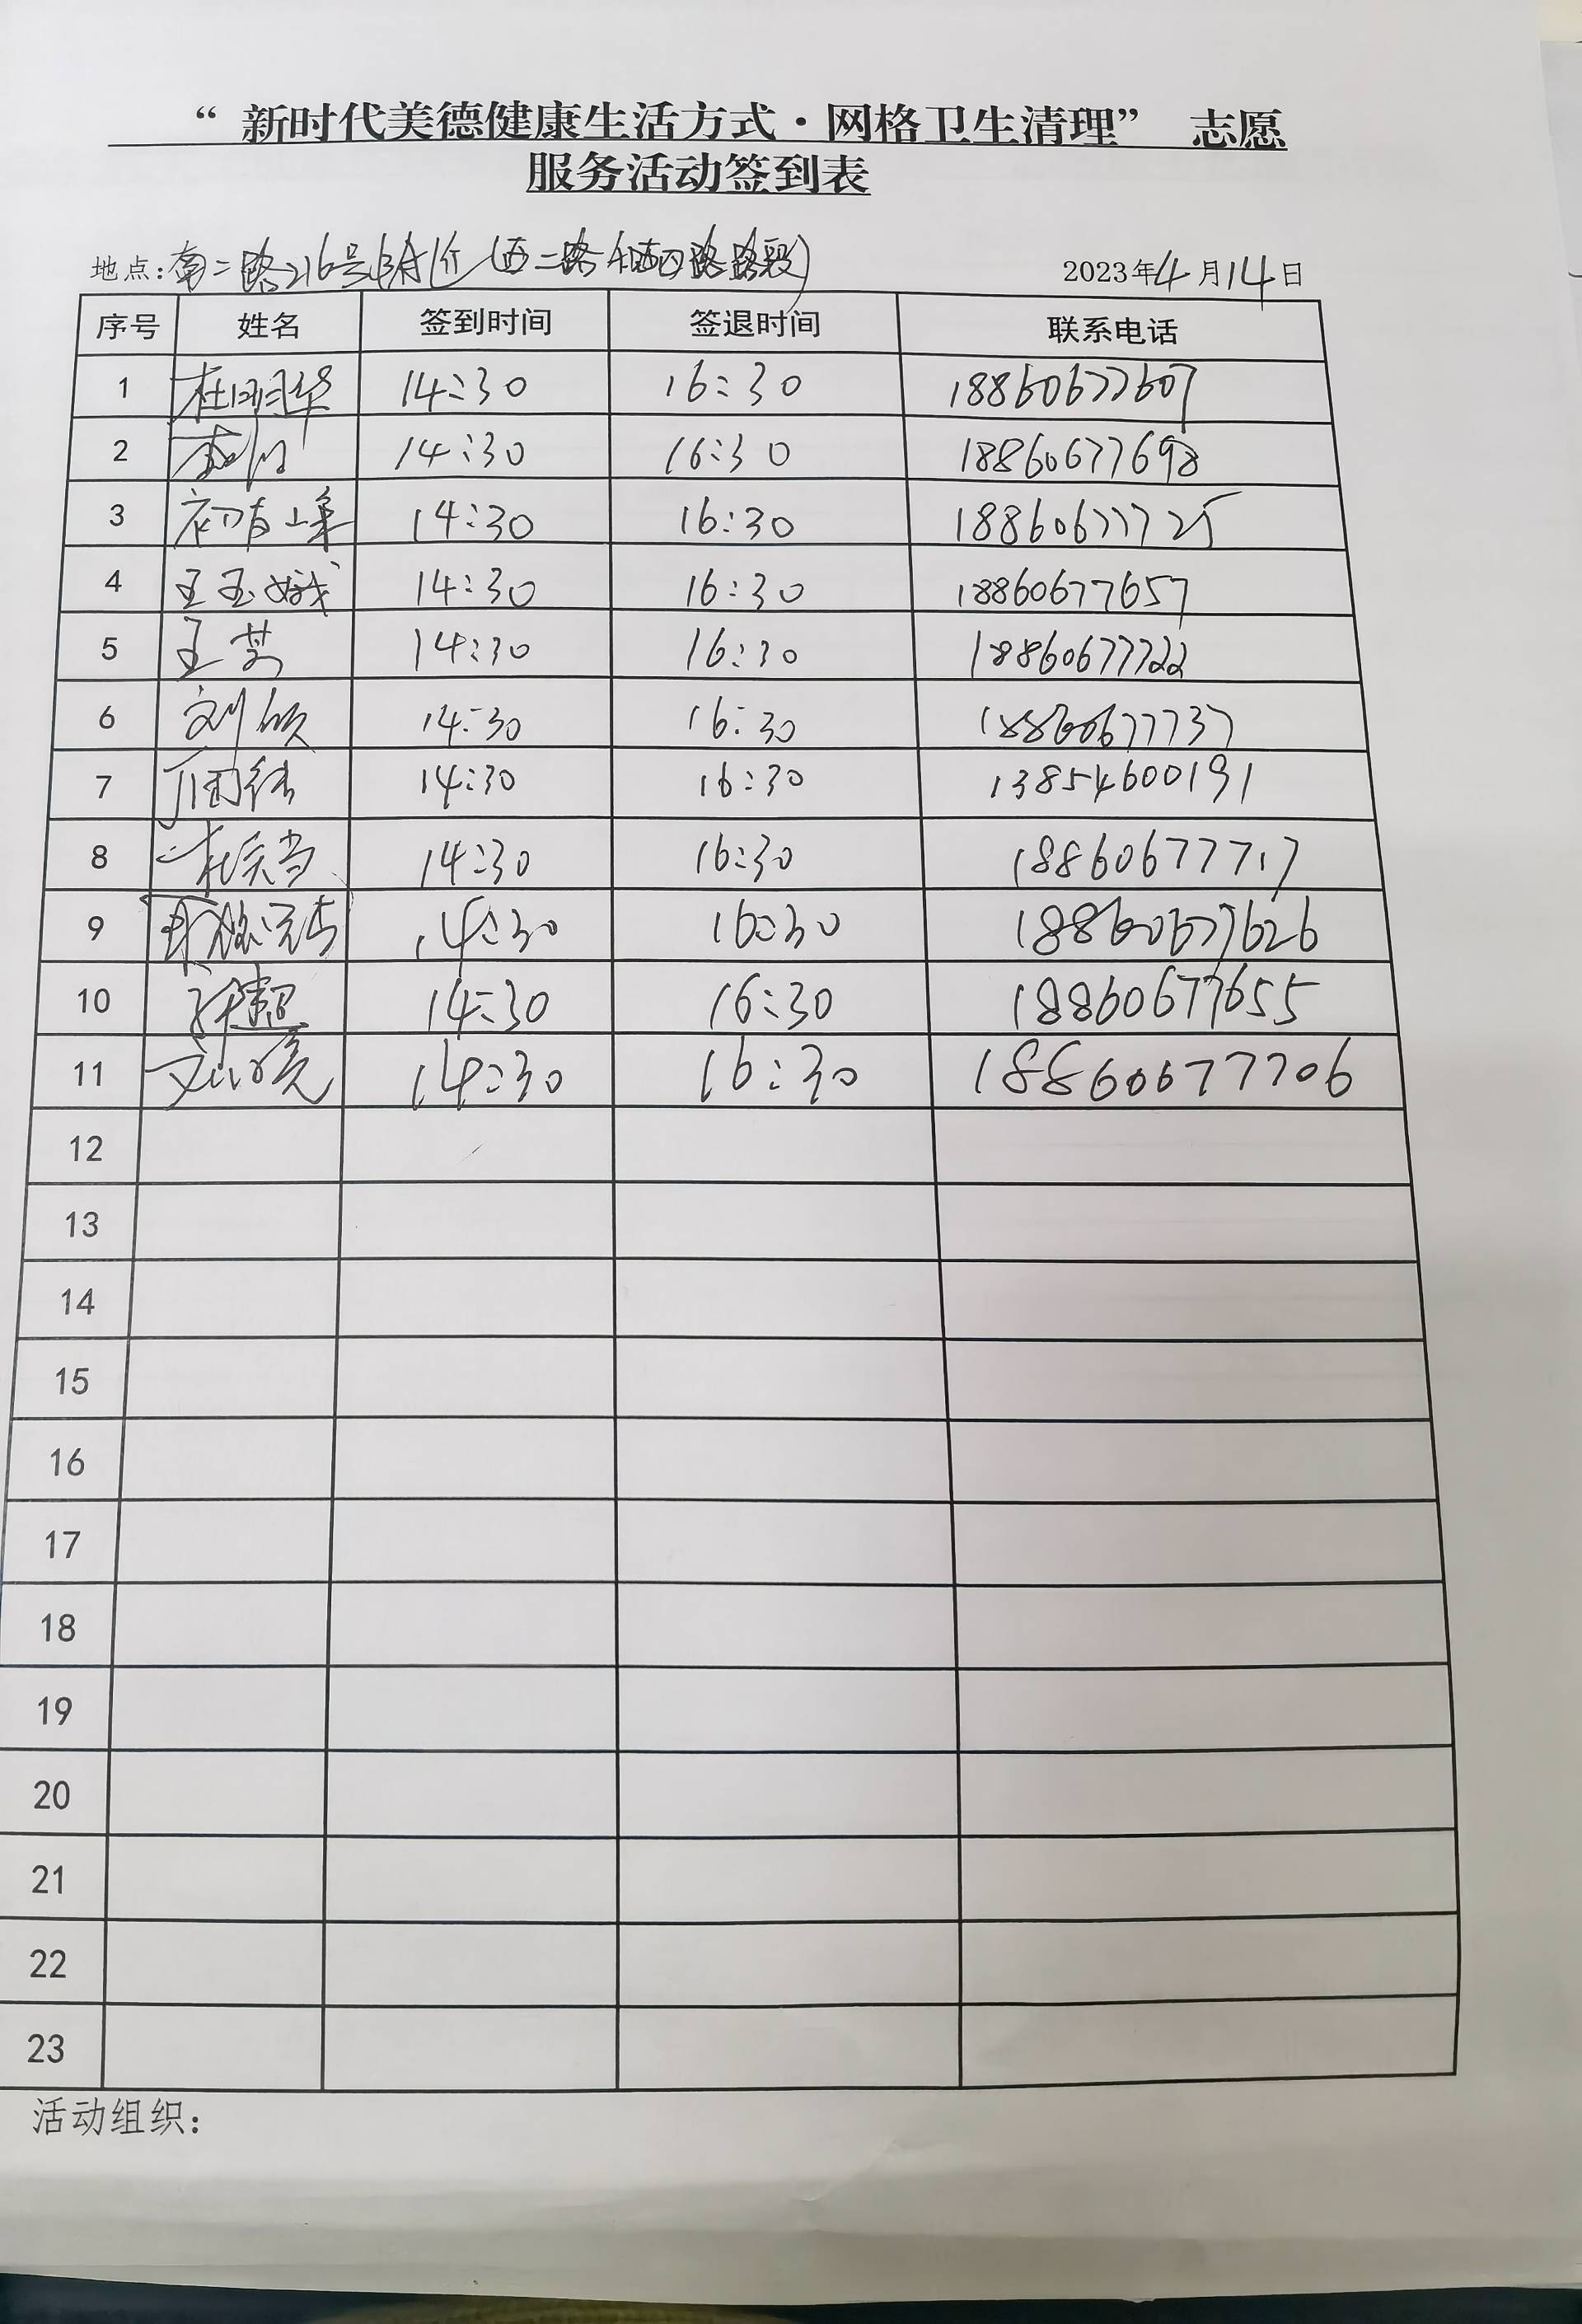 “ 新时代美德健康生活方式·网格卫生清理” 志愿
服务活动签到表
地点:南二路216号附近(西二路 西四路路段)
2023年4月14日
序号 姓名 签到时间 签退时间 联系电话
1 杜明华 14:30 16:30 18860677607
2 14:30 16:30 18860677698
3 初青峰 14:30 16:30 18860677725
4 王玉娥 14:30 16:30 18860677657
5 王芳 14:30 16:30 18860677722
6 刘欣 14:30 16:30 18860677737
7 周 14:30 16:30 13854600191
8 14:30 16:30 18860677717
9 14:30 16:30 18860677626
10 孙超 14:30 16:30 18860677655
11 刘晓亮 14:30 16:30 18860677706
12
13
14
15
16
17
18
19
20
21
22
23
活动组织: